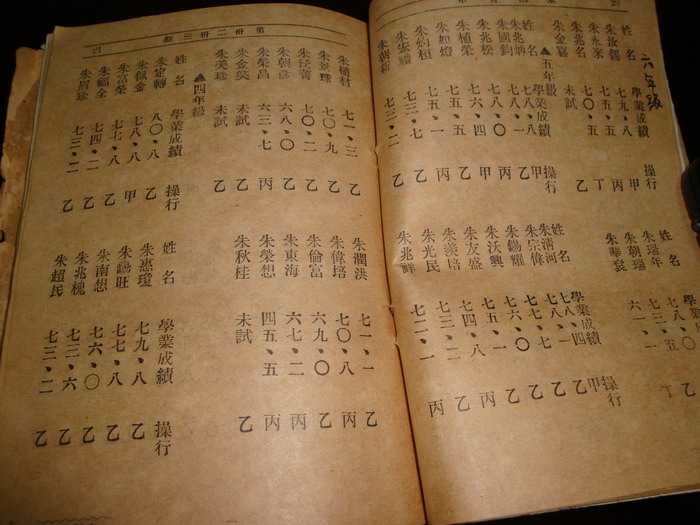 六年級
姓名 學業成績 操行
朱汝錫 七九、八 甲
朱永來 七〇、五 丁
朱兆名 未試 乙
朱金喜
姓名
朱瑞年 七八、〇 乙
朱朝瑞 七三、五 丁
朱華袞 六一、
▲五年級
姓名 學業成績 操行
朱兆炳 七八、一 甲
朱國鈞 七八、一 乙
朱兆松 七六、四 甲
朱植榮 七五、五 乙
朱如燈 七五、一 丙
朱灼桓 七三、七 乙
朱宏績 七三、二 乙
朱朝新
姓名 學業成績 操行
朱淸河 七八、四 甲
朱宗偉 七八、一 乙
朱錫耀 七七、七 乙
朱沃興 七六、〇 丙
朱友盛 七五、一 乙
朱渼培 七四、八 丙
朱光民 七三、二
朱兆祥 七二、一
第卅二卅三期
朱植材 七一、三 乙
朱翠瓊 七〇、九 乙
朱沃善 七〇、二 乙
朱朝彥 六八、〇 乙
朱榮昌 六三、七 丙
朱金奀 未試 乙
朱美珍 未試 乙
朱潤洪 七一、一 乙
朱偉培 七〇、八 丙
朱倫富 六九、〇 乙
朱東海 六七、二 丙
朱榮想 四五、五 丙
朱秋桂 未試 乙
▲四年級
姓名 學業成績 操行
朱定轉 八〇、八 乙
朱佩金 七八、八 甲
朱富榮 七七、八 乙
朱福全 七四、二 乙
朱眉珍 七三、二 乙
姓名 學業成績 操行
朱惠瓊 七九、八 乙
朱錫旺 七七、八 乙
朱南想 七六、〇 乙
朱兆槐 七三、六 乙
朱超民 七三、二 乙